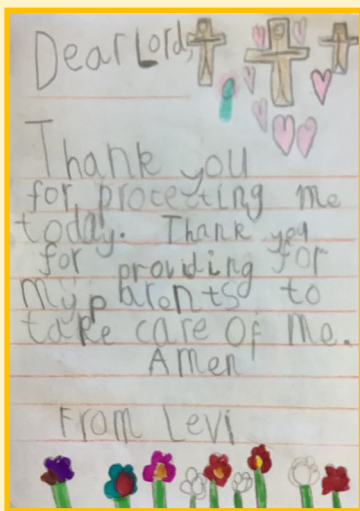 Dear Lord,
Thank you
for protecting me
today. Thank you
for providing for
my parents to
take care of me.
Amen
From Levi